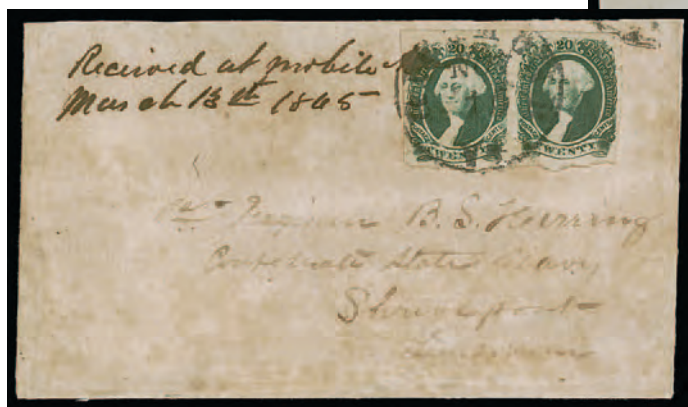 Received at Mobile
March 13th 1865
20 20
TWENTY TWENTY
B. S. Herring
Confederate States Navy
Shreveport
Louisiana